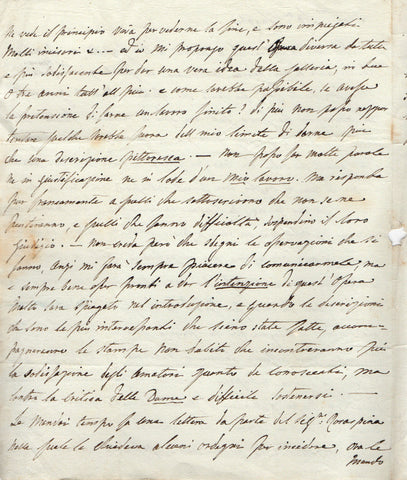 ne vede il principio viva per vederne la fine, e sono impiegati
molti incisori &... ed io mi propongo quest' Opera diversa da tutte
e più sodisfacente per dar una vera idea della Galleria, in due
o tre anni tutt' al più. e come sarebbe possibile, se avessi
la pretensione di farne un lavoro finito? di più non posso neppur
tentare perche sarebbe fuora dell mio limite di farne più
che una descrizione pittoresca. — non posso far molte parole
ne in giustificazione ne in lode d'un mio lavoro. Ma rispondo
pur francamente a quelli che sottoscrivono che non se ne
pentiranno, e quelli che fanno difficoltà, sospendino il loro
giudizio. — non creda però che sdegni le osservazioni che si
fanno, anzi mi farà sempre piacere di comunicarmele ma
e sempre bene esser pronti a dar l'intenzione di quest' Opera
molto sarà spiegato nel introduzione, e quando le descrizioni
che sono le più interessanti che sieno state fatte, accom-
pagneranno le stampe non dubiti che incontreranno più
la sodisfazione degli Amatori quanto de conoscenti, ma
contro la critica delle Dame e difficile sostenersi. —
Le mandai tempo fa una lettera da parte del Sigr. Rosaspina
nella quale le chiedeva alcuni ordegni per incidere, ora le
mando